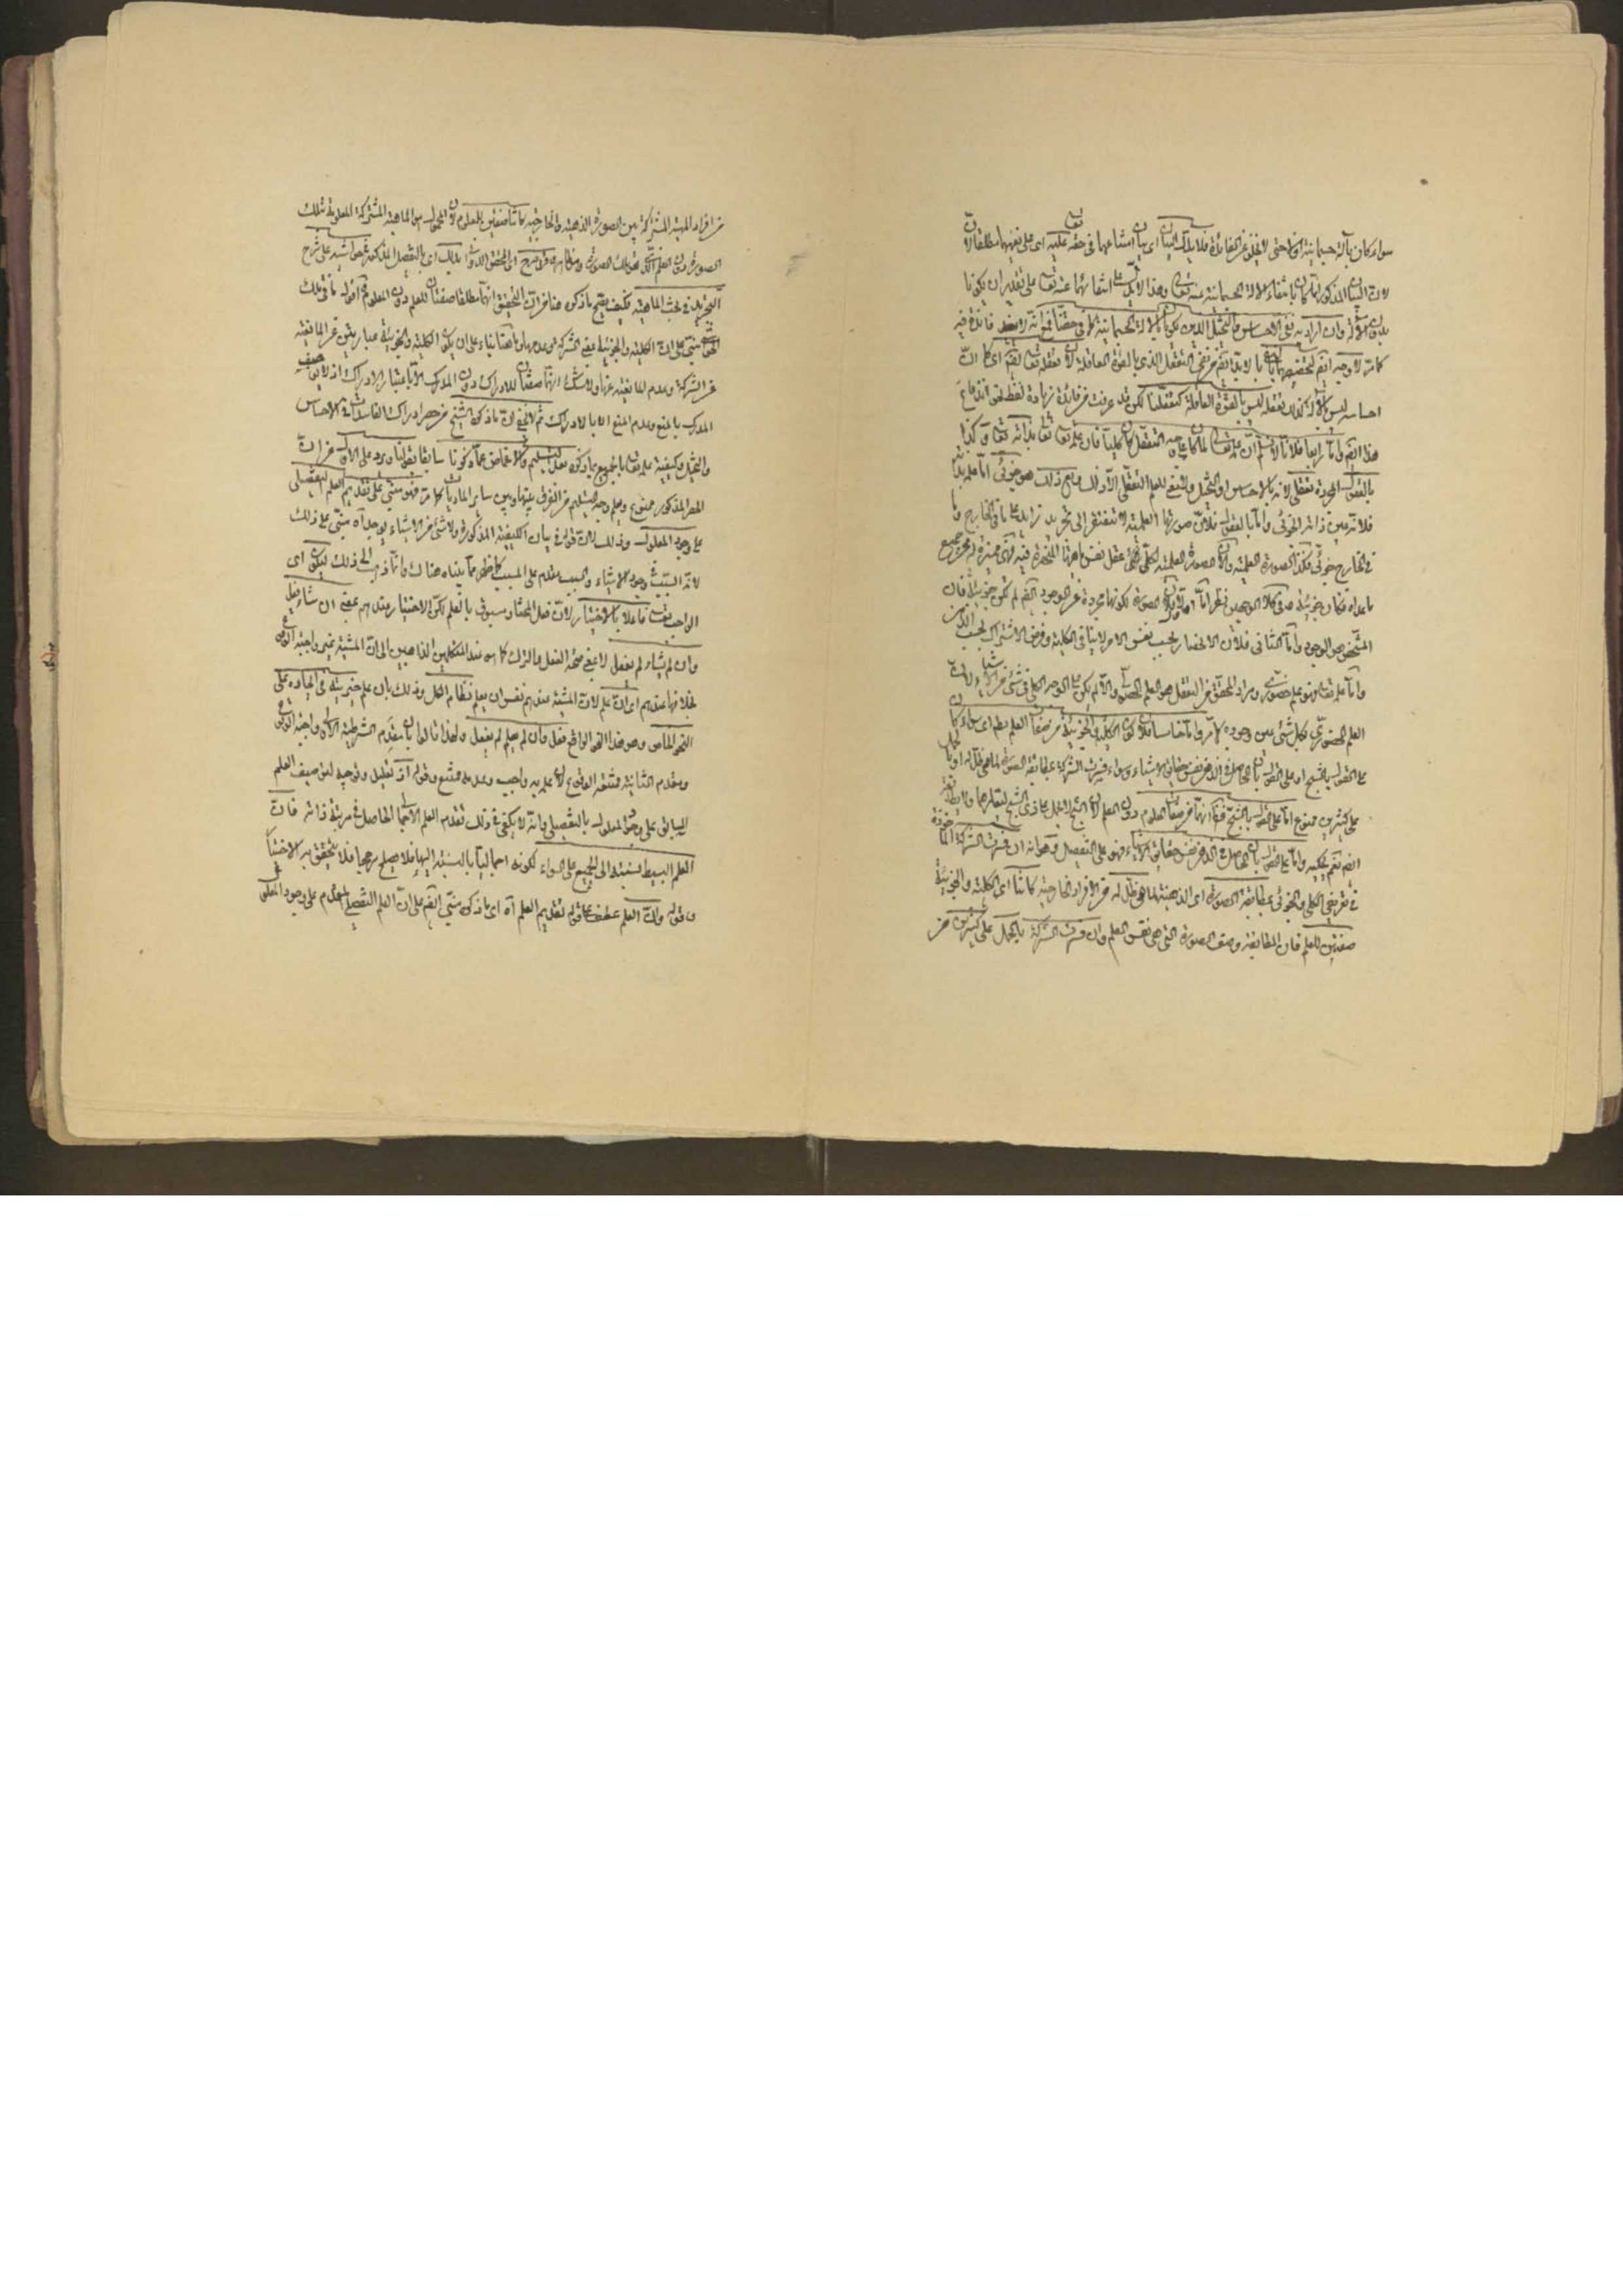 سواء كان بآلة جسمانية او لا حتى لا يخلو عن الفائدة فلا يدل البيان اى بيان امتناعهما فى حقه تعالى عليه اى على نفيهما مطلقا لان
لان البيان المذكور انما كان بانتفاء الآلة الجسمانية عنه تعالى وهذا لا يدل على انتفائهما عنه تعالى على تقدير ان يكونا
بدون الآلة وان اراد به نفى الاحساس والتخيل الذين يكونان بالآلة الجسمانية كما فى حقنا فمع انه لا يفيد فائدة فيه
كما مر لا وجه ايضا لتخصيصهما بل لا بد ايضا من نفى التعقل الذى بالقوة العاقلة لان تعقله تعالى ايضا اى كما ان
احساسه ليس بالآلة كذلك تعقله ليس بالقوة العاقلة كتعقلنا لكن قد عرفت من فائدة زيادة لفظ نحو اندفاع
هذا ايضا واما رابعا فلانا لا نسلم ان علمه تعالى لما كان على وجه التعقل كان كليا فان علمه تعالى بذاته تعالى وكذا
بالعقول المجردة تعقلى لانه بالاحساس او التخيل ولا نعنى للعلم التعقلى الا ذلك ومع ذلك هو جزئى اما علمه بذاته
فلانه عين ذاته الجزئى واما بالعقول فلان صورتها العلمية لا تفتقر الى تجريد زائد على ما فى الخارج وما
فى الخارج جزئى فكذا الصورة العلمية
ما عداه فكان جزئية
المشخص هو الوجود واما الثانى فلان الانحصار بحسب نفس الامر لا ينافى الكلية وفرض الاشتراك بحسب الذهن
واما علمه تعالى فهو علم حضورى ومراد المحقق من التعقل هو العلم الحصولى والا لم يكن على الوجه الكلى فى شئ من الاشياء لان
العلم الحضورى بكل شئ عين وجوده كما مر واما خامسا فلان كون الكلية والجزئية من صفات العلم بطم اى سواء كا
على القول بالشبح او على القول بان الحاصل فى الذهن نفس حقائق الاشياء وسواء فسرت الشركة بمطابقة الصورة لما هى ظل له او بالحمل
على كثيرين ممنوع اما على القول بالشبح فلانهما من صفات المعلوم دون العلم
ايضا نعم يمكنه واما على القول بان الحاصل فى الذهن نفس حقائق الاشياء فهو على التفصيل وهو انه ان فسرت الشركة المأخوذة
فى تعريفى الكلى والجزئى بمطابقة الصورة اى الذهنية لما هى ظل له من الافراد الخارجية كانتا اى الكلية والجزئية
صفتين للعلم فان المطابقة وصف الصورة التى هى نفس العلم وان فسرت الشركة بالحمل على كثيرين من
من افراد المهية المشتركة بين الصورة الذهنية والخارجية كانتا صفتين للمعلوم لان المحمول هو الماهية المشتركة المعلومة بتلك
الصورة دون العلم الذى هو تلك الصورة اى المحقق الدوانى بذلك اى بالتفصيل المذكور فى حواشيه على شرح
التجريد فى بحث الماهية فكيف يصح ما ذكره هنا من ان التحقيق انهما مطلقا صفتان للعلم دون المعلوم اقول ما فى تلك
الحواشى مبنى على ان الكلية والجزئية بمعنى الشركة وعدمها وما هنا بناء على ان يكون الكلية والجزئية عبارتين عن المانعية
عن الشركة وعدم المانعية عنها ولا شك انهما صفتان للادراك دون المدرك الا باعتبار الادراك اذ لا يوصف
المدرك بالمنع وعدم المنع الا بالادراك ثم لا يخفى ان ما ذكره الشيخ من حصر ادراك الفاسدات فى الاحساس
والتخيل وكيفية علمه تعالى بالجميع بما ذكره بعد التسليم والاغماض عما ذكرنا سابقا يرد على الاول من ان
الحصر المذكور ممنوع وبعدم وجه التسليم من الفرق بينها وبين سائر الماديات كما مر فهو مبنى على تقديم العلم التفصيلى
على وجود المعلول وذلك لان قوله فى بيان الكيفية المذكورة ولا شئ من الاشياء يوجد آه مبنى على ذلك
لانه السبب فى وجود الاشياء والسبب مقدم على المسبب كما ظهر مما بيناه هناك وانما ذهب الى ذلك ليكون اى
الواجب تعالى فاعلا بالاختيار لان فعل المختار مسبوق بالعلم لكن الاختيار عندهم بمعنى ان شاء فعل
وان لم يشاء لم يفعل لا بمعنى صحة الفعل والترك كما هو عند المتكلمين الذاهبين الى ان المشية غير واجبة الوقوع
بخلافها عندهم اى ان علم لان المشية عندهم نفس ان يعلم نظام الكل وذلك بان علم خيريته فى ايجاده على
النحو الخاص وهو هذا النحو الواقع فعل وان لم يعلم لم يفعل ولهذا قالوا بان مقدم الشرطية الاولى واجبة الوقوع
ومقدم الثانية ممتنعة الوقوع لان علمه به واجب وعدمه ممتنع وقوله اذ تعليل وتوجيه لتوصيف العلم
السابق على وجود المعلول بالتفصيلى وانه لا يكفى فى ذلك تقدم العلم الاجمالى الحاصل فى مرتبة ذاته فان
العلم البسيط نسبته الى الجميع على السواء لكونه اجماليا بالنسبة اليها فلا يصلح مرجحا فلا يتحقق به الاختيار
وقوله وان العلم عطف على قوله تقديم العلم آه اى ما ذكره مبنى ايضا على ان العلم التفصيلى المقدم على وجود المعلول